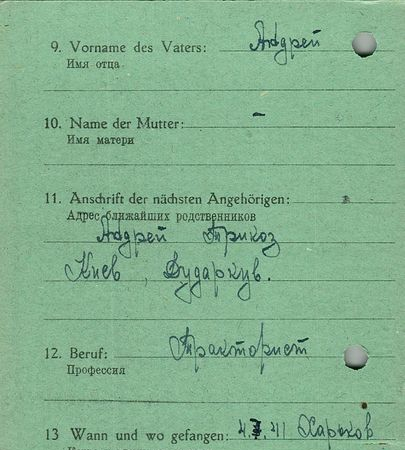 9. Vorname des Vaters: Андрей
Имя отца
10. Name der Mutter: –
Имя матери
11. Anschrift der nächsten Angehörigen:
Адрес ближайших родственников
Андрей Трикоз
Киев, Бударкув.
12. Beruf: Тракторист
Профессия
13 Wann und wo gefangen: 41 Харьков